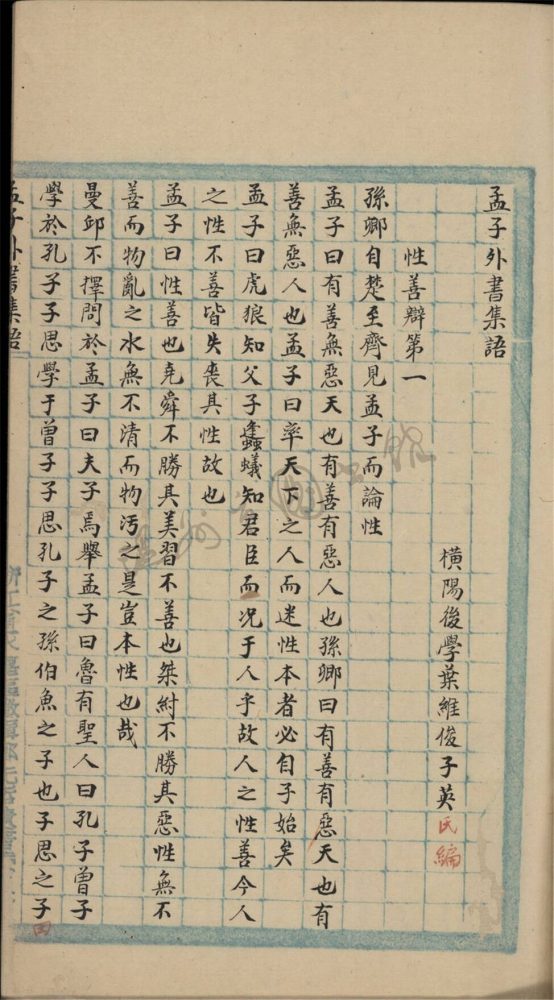 孟子外書集語
橫陽後學葉維俊子英氏編
性善辯第一
孫卿自楚至齊見孟子而論性
孟子曰有善無惡天也有善有惡人也孫卿曰有善有惡天也有
善無惡人也孟子曰率天下之人而迷性本者必自子始矣
孟子曰虎狼知父子螽蟻知君臣而况于人乎故人之性善今人
之性不善皆失喪其性故也
孟子曰性善也堯舜不勝其美習不善也桀紂不勝其惡性無不
善而物亂之水無不清而物汚之是豈本性也哉
曼邱不擇問於孟子曰夫子焉學孟子曰魯有聖人曰孔子曾子
學於孔子子思學于曾子子思孔子之孫伯魚之子也子思之子
孟子外書集語